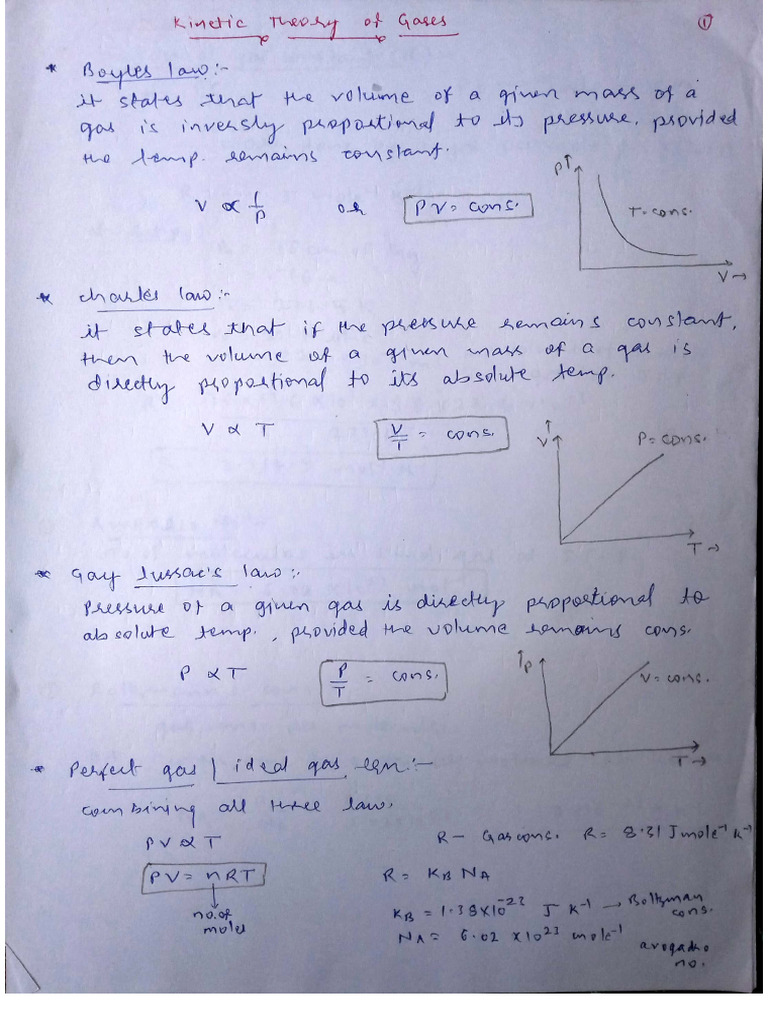 Kinetic Theory of Gases
1
* Boyles law:-
it states that the volume of a given mass of a
gas is inversly proportional to its pressure, provided
the temp. remains constant.
V ∝ 1/P or PV = cons.
P↑
T = cons.
V→
* charles law:-
it states that if the pressure remains constant,
then the volume of a given mass of a gas is
directly proportional to its absolute temp.
V ∝ T V/T = cons.
V↑
P = cons.
T→
* Gay lussac's law:-
Pressure of a given gas is directly proportional to
absolute temp., provided the volume remains cons.
P ∝ T P/T = cons.
↑P
V = cons.
T→
* Perfect gas | ideal gas eqn:-
combining all three law.
PV ∝ T
R - Gas cons. R = 8.31 J mole⁻¹ K⁻¹
PV = nRT
R = KB NA
no. of
moles
KB = 1.38 × 10⁻²³ J K⁻¹ → Boltzman
cons.
NA = 6.02 × 10²³ mole⁻¹
avogadro
no.